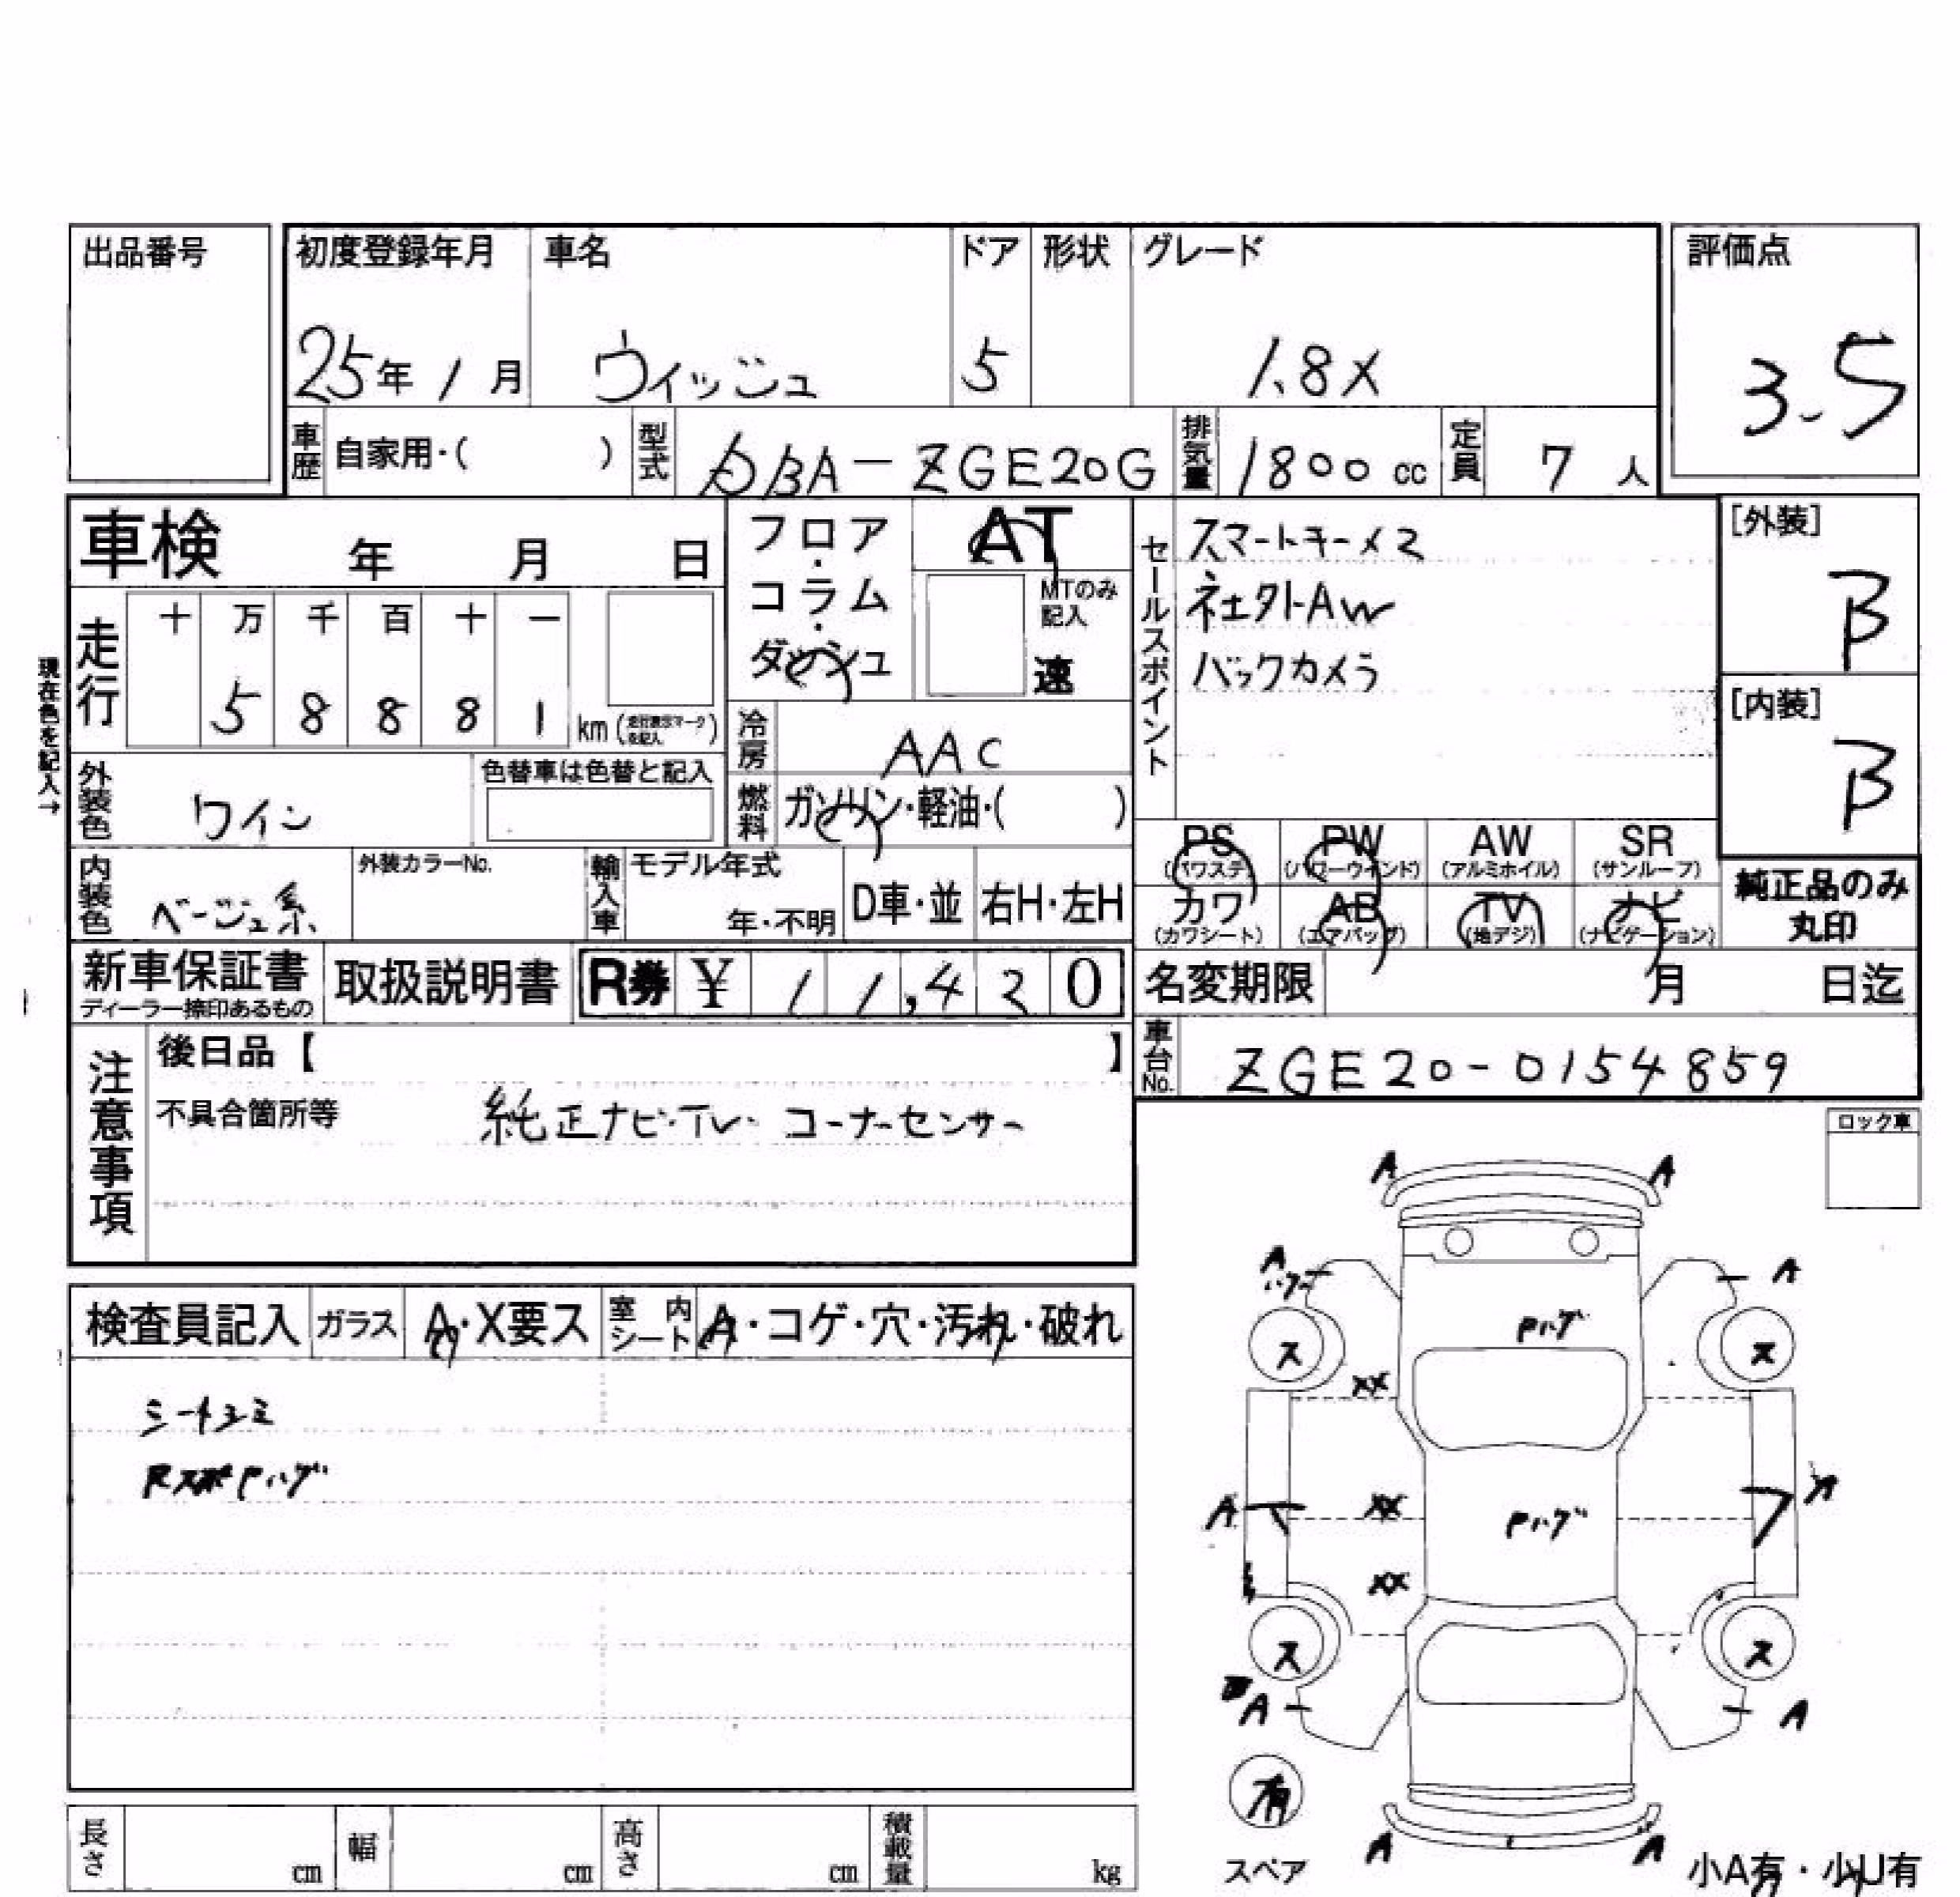 出品番号
初度登録年月 車名 ドア 形状 グレード 評価点
25年 1月 ウィッシュ 5 1.8X 3.5
車歴 自家用・( ) 型式 DBA-ZGE20G 排気量 1800 cc 定員 7 人
車検 年 月 日
フロア・コラム・ダッシュ
AT
MTのみ記入
速
セールスポイント
スマートキー×2
社外AW
バックカメラ
[外装]
B
[内装]
B
現在色を記入→
走行 十 万 千 百 十 一
5 8 8 8 1 km (走行表示マークを記入)
冷房 AAC
燃料 ガソリン・軽油・( )
外装色 ワイン 色替車は色替と記入
内装色 ベージュ系 外装カラーNo. 輸入車 モデル年式 年・不明 D車・並 右H・左H
PS (パワステ) PW (パワーウインド) AW (アルミホイル) SR (サンルーフ)
カワ (カワシート) AB (エアバッグ) TV (地デジ) ナビ (ナビゲーション)
純正品のみ丸印
新車保証書 ディーラー捺印あるもの 取扱説明書 R券 ¥ 11,420
名変期限 月 日迄
車台No. ZGE20-0154859
注意事項
後日品【 】
不具合箇所等 純正ナビ・TV・コーナーセンサー
ロック車
検査員記入 ガラス A・X要ス 室内シート A・コゲ・穴・汚れ・破れ
RスポPハゲ
A A
A A
ハゲ
Pハゲ
ス ス
XX
A XX Pハゲ
XX
ス ス
A A
有
スペア
A A
小A有・小U有
長さ cm 幅 cm 高さ cm 積載量 kg